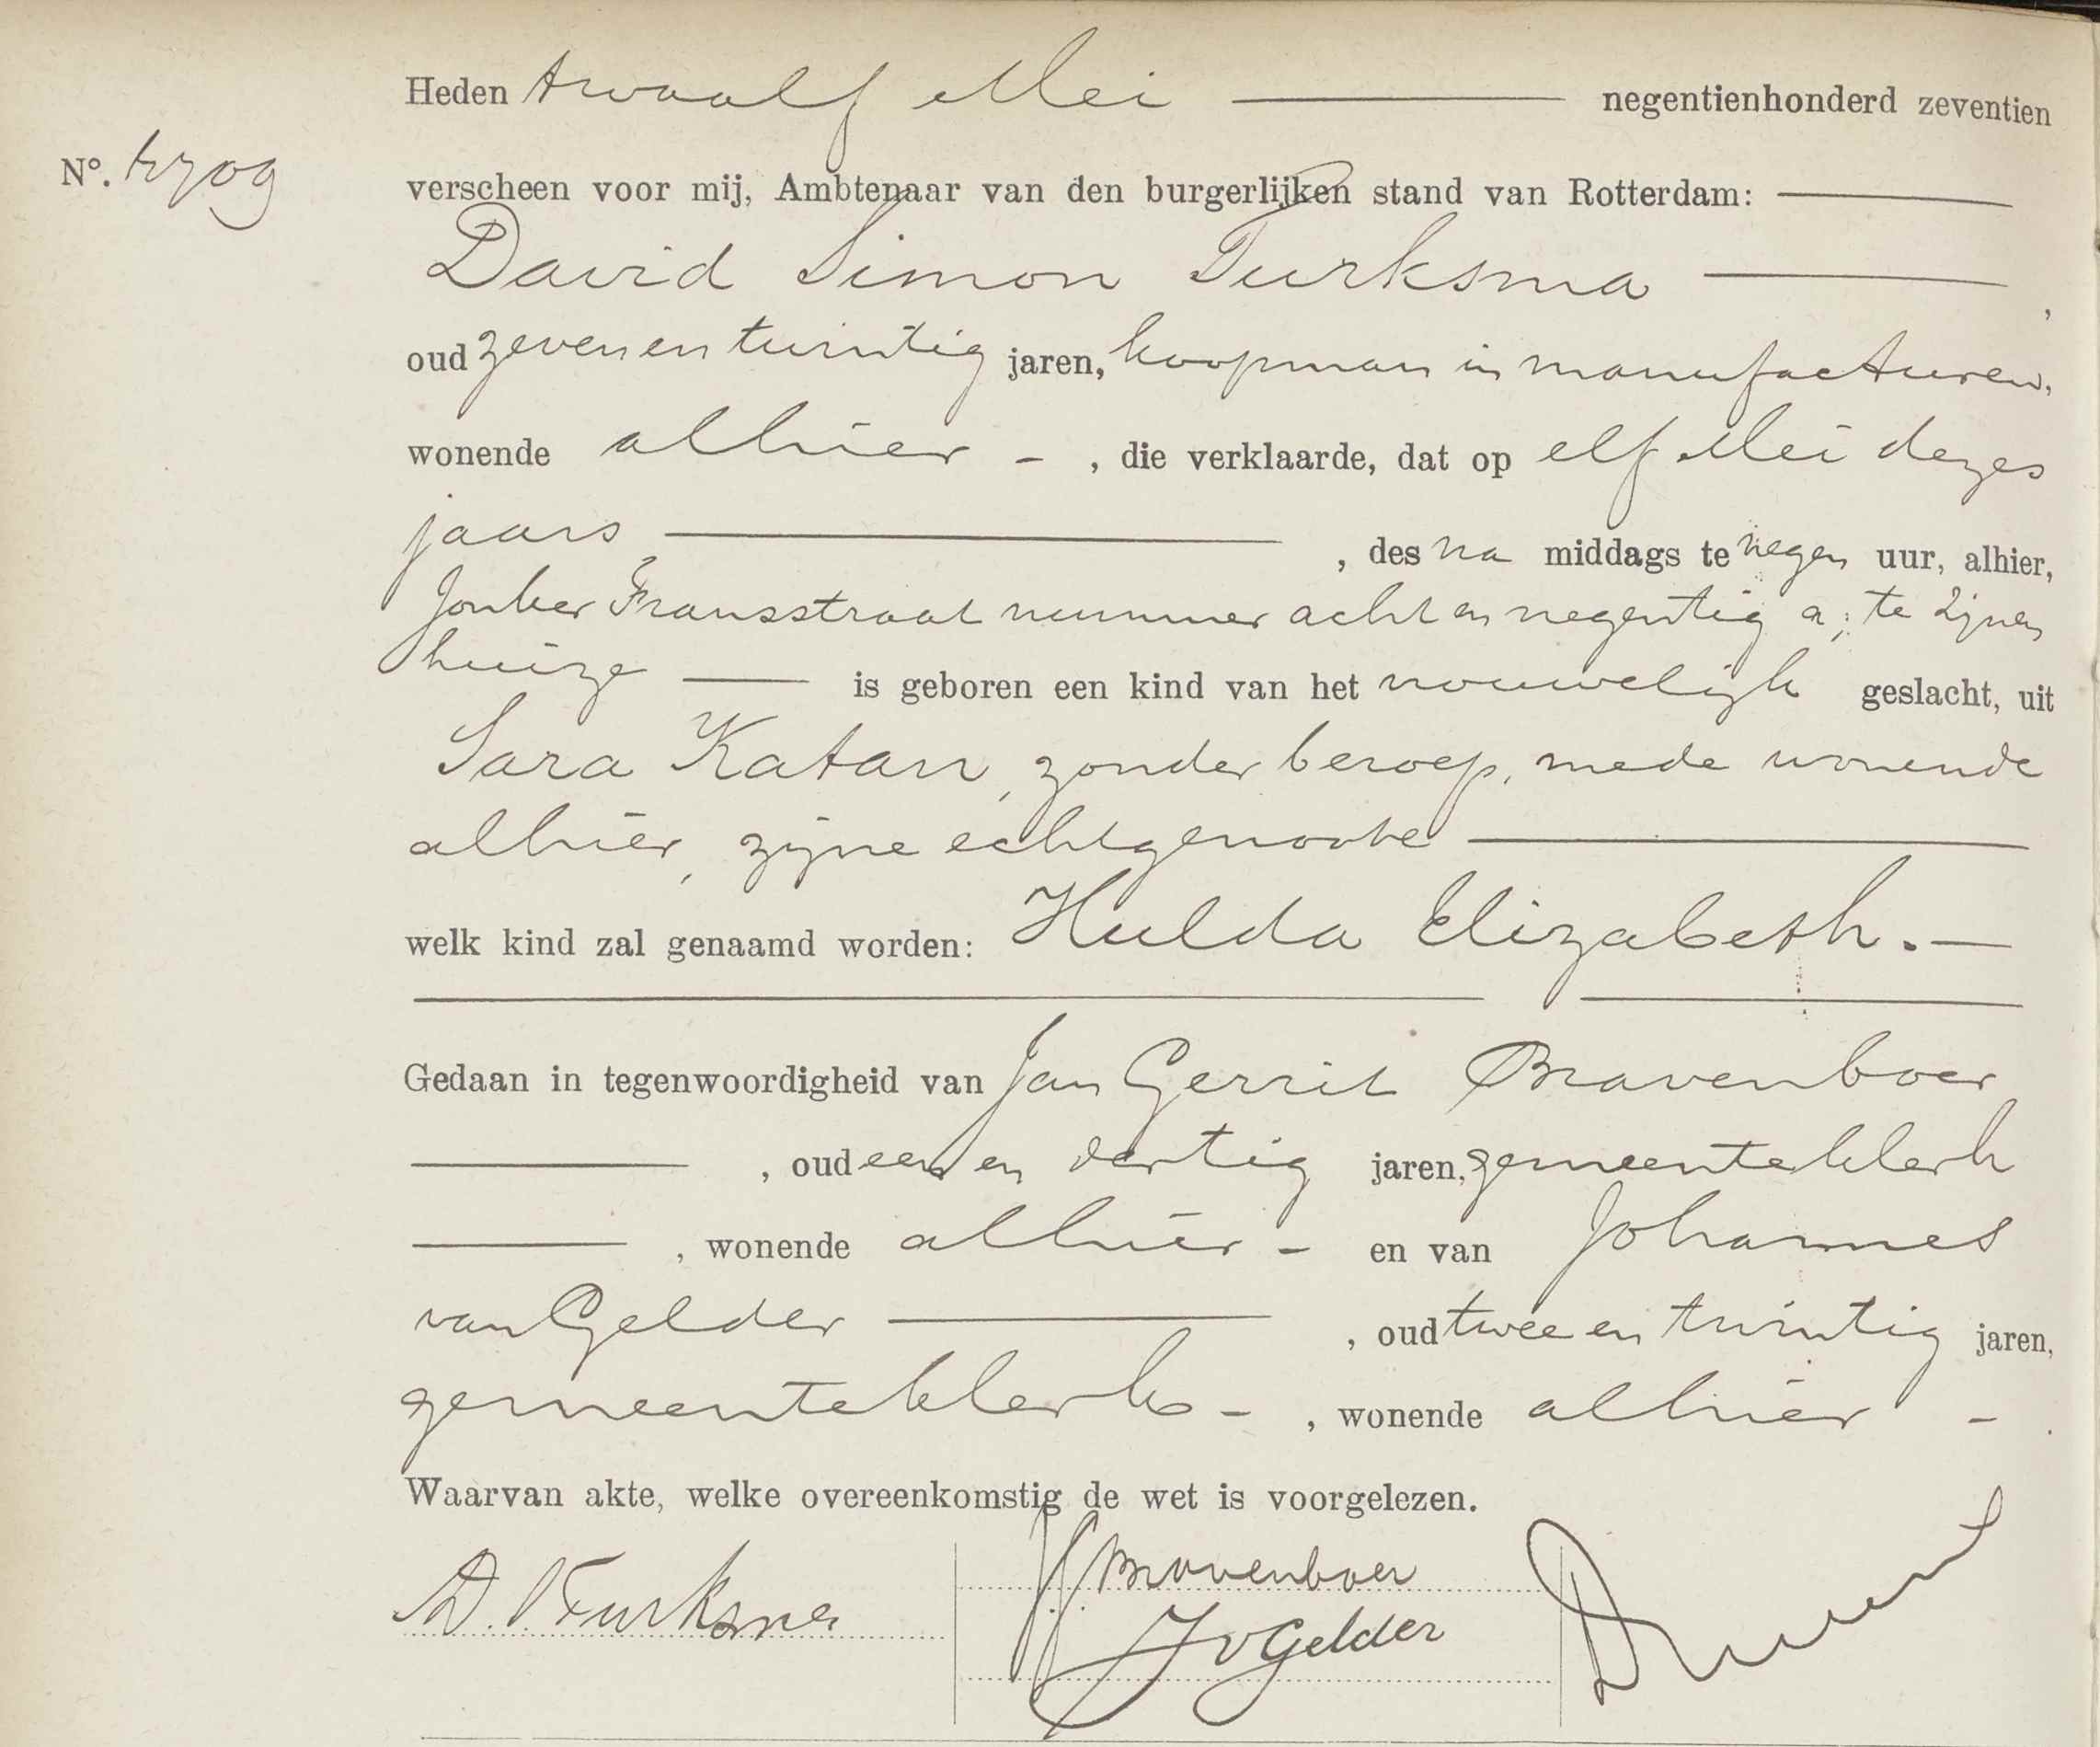 Heden twaalf Mei negentienhonderd zeventien
No. 4709
verscheen voor mij, Ambtenaar van den burgerlijken stand van Rotterdam:
David Simon Turksma ,
oud zeven en twintig jaren, koopman in manufacturen,
wonende alhier - , die verklaarde, dat op elf Mei dezes
jaars , des na middags te negen uur, alhier,
Jonker Fransstraat nummer acht en negentig a; te zijnen
huize is geboren een kind van het vrouwelijk geslacht, uit
Sara Katan, zonder beroep, mede wonende
alhier, zijne echtgenoote
welk kind zal genaamd worden: Hulda Elizabeth.
Gedaan in tegenwoordigheid van Jan Gerrit Bravenboer
, oud een en dertig jaren, gemeenteklerk
, wonende alhier - en van Johannes
van Gelder , oud twee en twintig jaren,
gemeenteklerk - , wonende alhier - .
Waarvan akte, welke overeenkomstig de wet is voorgelezen.
D. S. Turksma
JG Bravenboer
J v Gelder